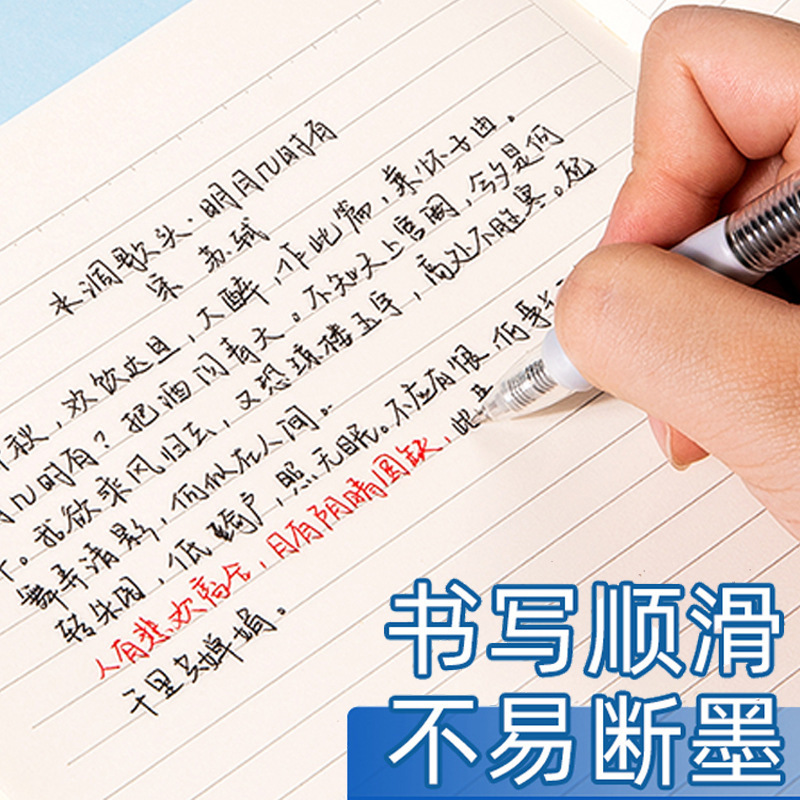 水调歌头·明月几时有
宋 苏轼
秋，欢饮达旦，大醉，作此篇，兼怀子由。
月几时有？把酒问青天。不知天上宫阙，今夕是何
年。我欲乘风归去，又恐琼楼玉宇，高处不胜寒。起
舞弄清影，何似在人间。
转朱阁，低绮户，照无眠。不应有恨，何事长
人有悲欢离合，月有阴晴圆缺，此
千里共婵娟。
书写顺滑
不易断墨